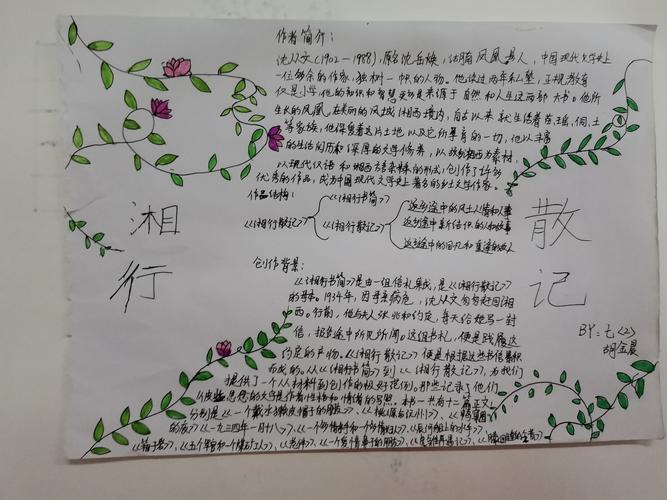 作者简介：
沈从文(1902-1988),原名沈岳焕,湖南凤凰县人,中国现代文学史上
一位多余的作家,独树一帜的人物。他读过两年私塾,正规教育
仅是小学,他的知识和智慧更多是来源于自然和人生这两部大书。他所
生长的凤凰,在美丽的凤城湘西境内,自古以来就生活着苗、瑶、侗、土
等家族,他深爱着这片土地以及它所孕育的一切,他以丰富
的生活阅历和深厚的文学修养,以故乡湘西为素材,
以现代汉语和湘西方言杂糅的形式,创作了许多
优秀的作品,成为中国现代文学史上著名的乡土文学作家。
作品结构：
《湘行散记》
《湘行书简》
《湘行散记》
返乡途中的风土人情和人事
返乡途中新结识的人和故事
返乡途中的回忆和重逢的故人
湘行
散记
创作背景：
《湘行书简》是由一组信札集成,是《湘行散记》
的母本。1934年,因母亲病危,沈从文匆匆赶回湘
西。行前,他与夫人张兆和约定,每天给她写一封
信,报告途中所见所闻。这组书札,便是践履这
约定的产物。《湘行散记》便是根据这些书信累积
而成的。从《湘行书简》到《湘行散记》,为我们
提供了一个从材料到创作的极好范例。那些记录了他们
思想的文字是作者性格和情绪的写照。本书一共有十二篇正文,
分别是《一个戴水獭皮帽子的朋友》、《桃源与沅州》、《鸭窠围
的夜》《一九三四年一月十八》、《一个多情水手和一个多情妇人》、《辰河小船上的水手》、
《箱子岩》、《五个军官和一个煤矿工人》、《老伴》、《一个爱惜鼻子的朋友》、
BY:七(2)
胡金晨